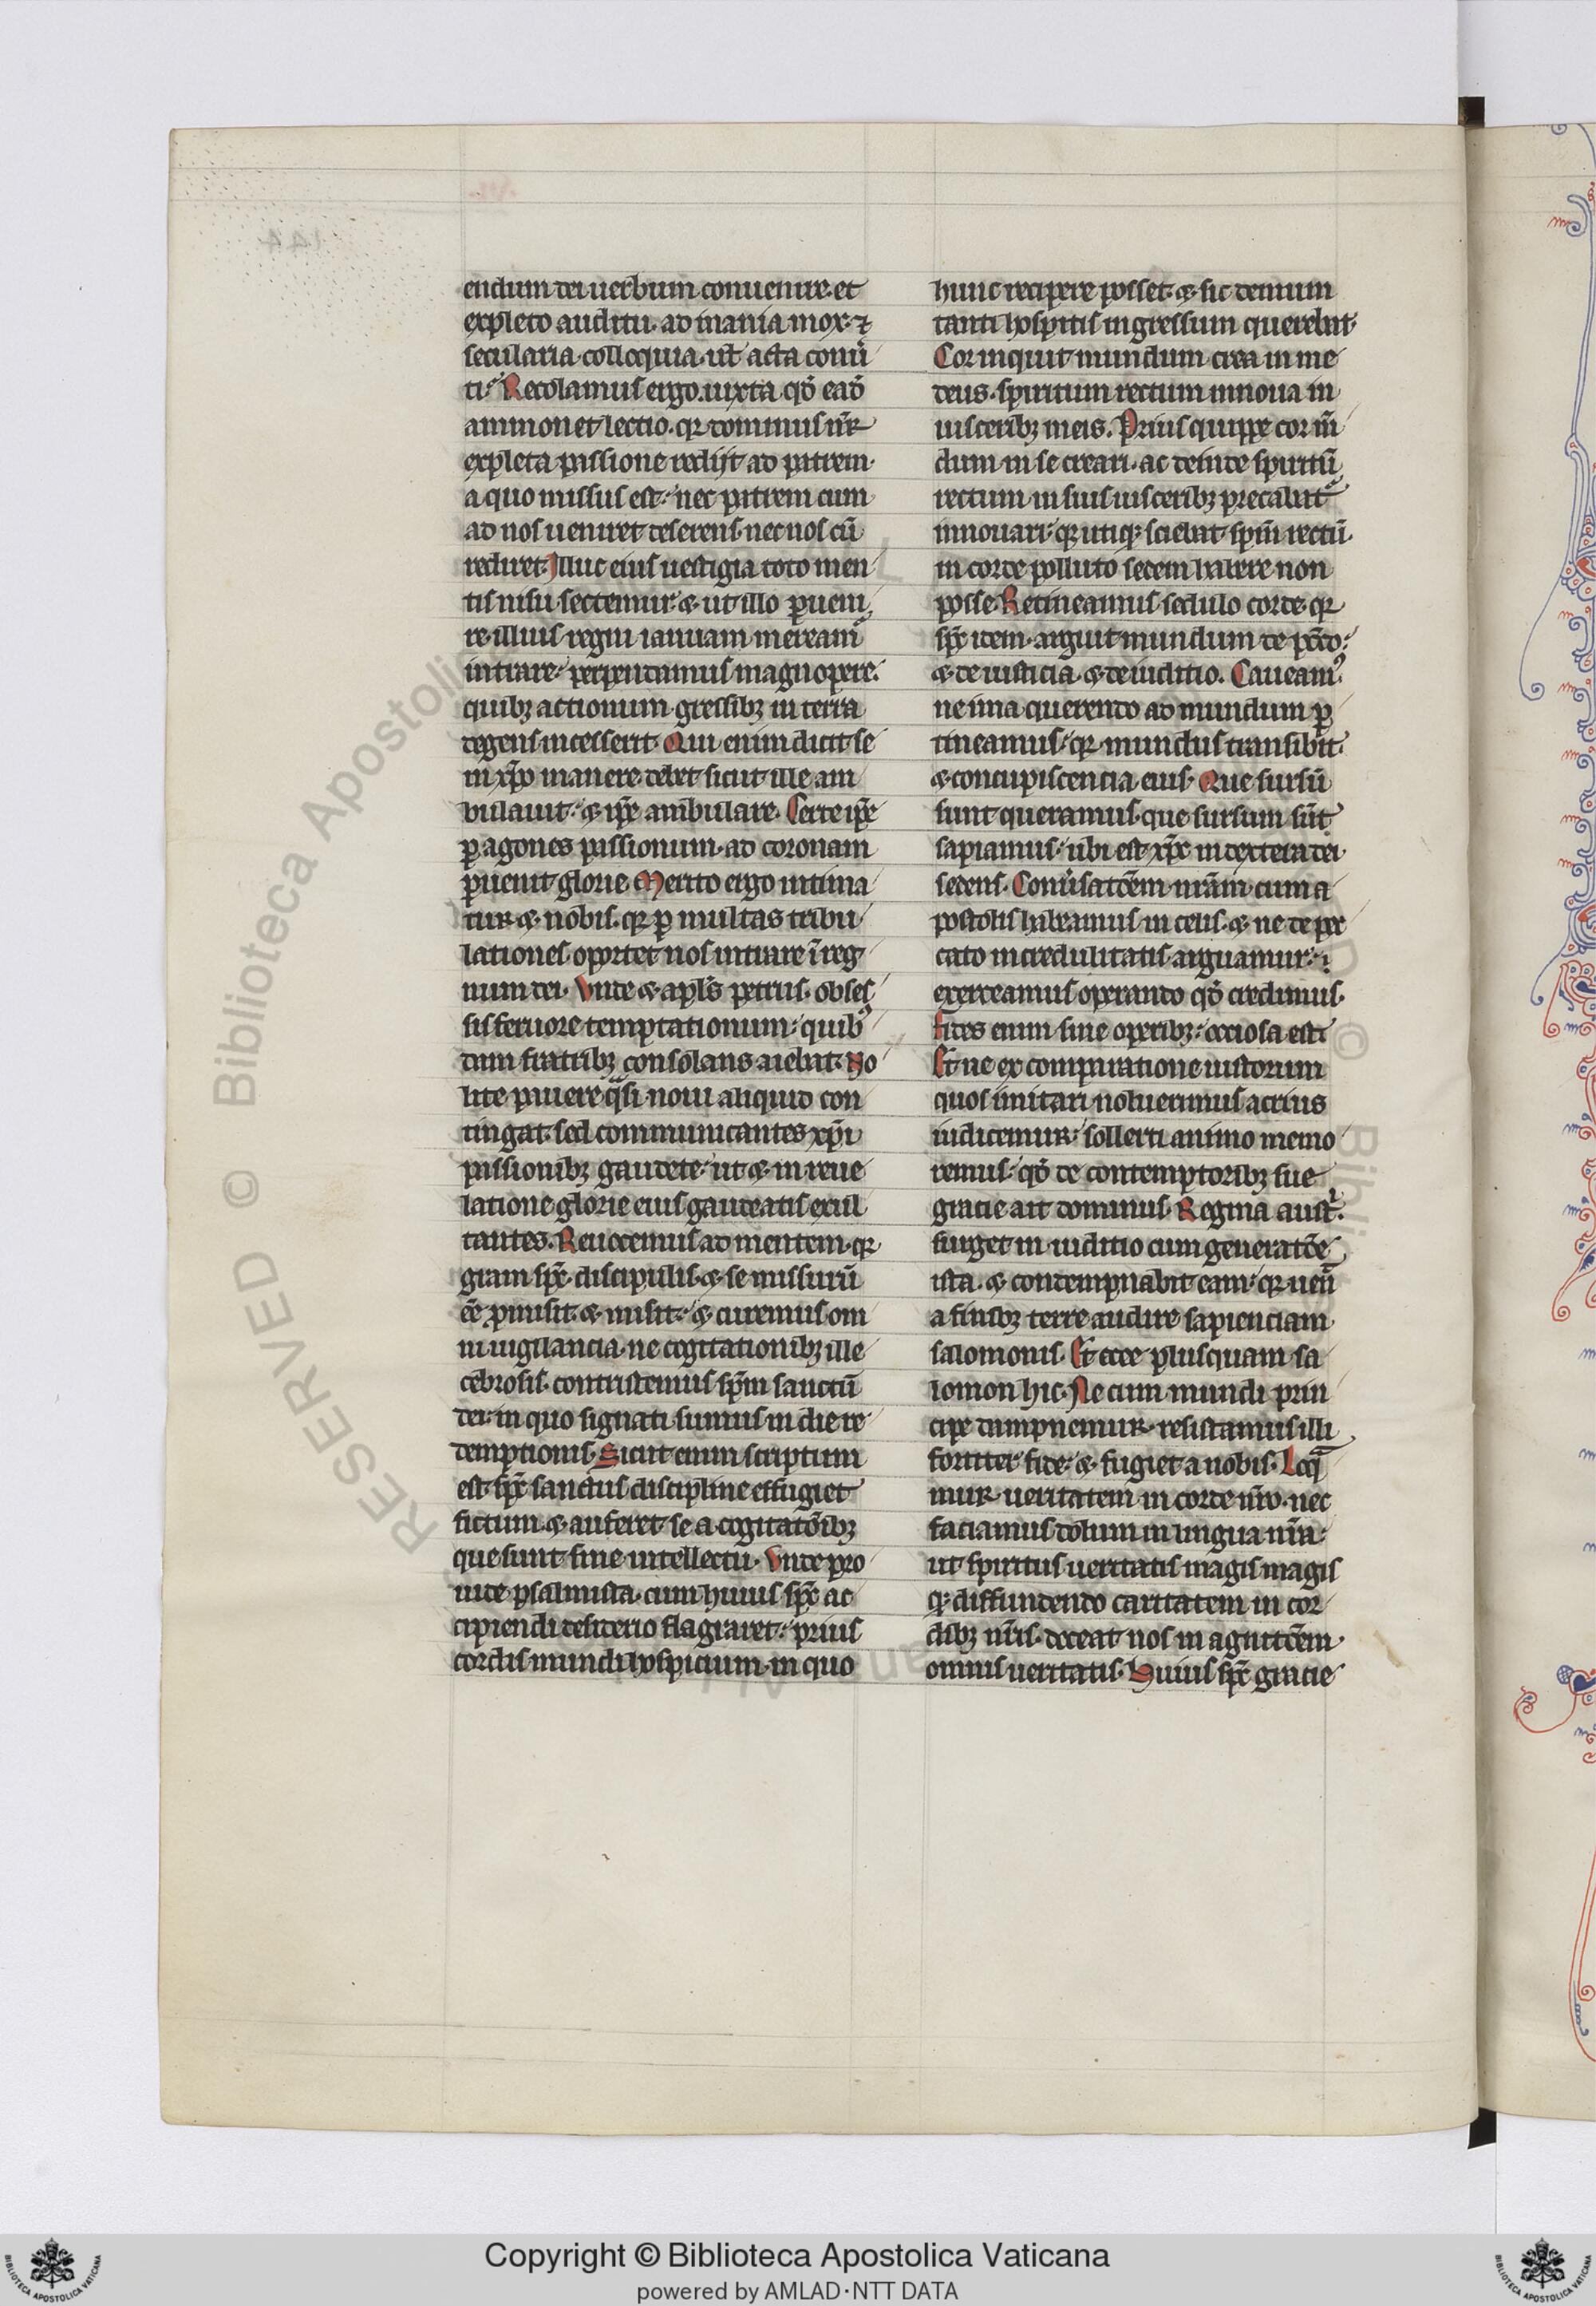 endum dei uerbum conuenire. et
expleto auditu. ad inania mox. ⁊
secularia colloquia. ul' acta conu̾
ti. Recolamus ergo. iuxta qd̾ ead̾
ammonet lectio. qꝛ dominus nr̄
expleta passione redijt ad patrem.
a quo missus est. nec patrem cum
ad nos ueniret deserens. nec nos cū
rediret. Illuc eius uestigia toto men
tis nisu sectemur. ⁊ ut illo ꝑueni
re. illius regni ianuam meream̾
intrare. perpendamus magnopere.
quibꝫ actionum gressibꝫ in terra
degens incesserit. Qui enim dicit se
in xp̄o manere debet sicut ille am
bulauit. ⁊ ip̄e ambulare. Certe ip̄e
ꝑ agones passionum. ad coronam
ꝑuenit glorie. Merito ergo intima
tur ⁊ nobis. qꝛ ꝑ multas tribu
lationes oportet nos intrare ī reg
num dei. Unde ⁊ apl's petrus. obses
sis feruore temptationum. quibꝰ
dam fratribꝫ consolans aiebat. No
lite pauere qᵃsi noui aliquid con
tingat. sed communicantes xp̄i
passionibꝫ gaudete. ut ⁊ in reue
latione glorie eius gaudeatis exul
tantes. Reuocemus ad mentem. qꝛ
gr̄am sp̄c. discipulis ⁊ se missurū
eē ꝓmisit. ⁊ misit. ⁊ curemus om
ni uigilancia. ne cogitationibꝫ ille
cebrosis. contristemus sp̄m sanctū
dei. in quo signati sumus in die re
demptionis. Sicut enim scriptum
est. sp̄c sanctus discipline effugiet
fictum. ⁊ auferet se a cogitatōibꝫ
que sunt sine intellectu. Unde pro
uide psalmista. cum huius sp̄c ac
cipiendi desiderio flagraret. prius
cordis mundi hospicium. in quo
hunc recipere posset. ⁊ sic demum
tanti hospitis ingressum querebat.
Cor inquit mundum crea in me
deus. spiritum rectum innoua in
uisceribꝫ meis. Prius quippe cor m̄
dum in se creari. ac deinde spiritū
rectum in suis uisceribꝫ precabat̾
innouari. qꝛ utiqꝫ sciebat sp̄m rectū
in corde polluto sedem habere non
posse. Retineamus sedulo corde. qꝛ
sp̄c idem. arguit mundum de pc̄co.
⁊ de iusticia. ⁊ de iuditio. Caueamꝰ
ne ima querendo ad mundum ꝑ
tineamus. qꝛ mundus transibit.
⁊ concupiscencia eius. Que sursū
sunt queramus. que sursum sūt
sapiamus. ubi est xp̄c in dextera dei
sedens. Conu̾satōem nr̄am cum a
postolis habeamus in celis. ⁊ ne de pec
cato incredulitatis arguamur.
exerceamus operando qd̾ credimus.
Fides enim sine operibꝫ. occiosa est
Et ne ex comparatione iustorum
quos imitari noluerimus acrius
iudicemur. sollerti animo memo
remus. qd̾ de contemptoribꝫ sue
gracie ait dominus. Regina aust̾.
surget in iuditio cum generatōe
ista. ⁊ condempnabit eam. qꝛ uen̄
a finibꝫ terre audire sapienciam
salomonis. Et ecce plusquam sa
lomon hic. Ne cum mundi prin
cipe dampnemur. resistamus illi
fortiter fide. ⁊ fugiet a nobis. Loqᵃ
mur ueritatem in corde nr̄o. nec
faciamus dolum in lingua nr̄a.
ut spiritus ueritatis magis magis
qꝫ diffundendo caritatem in cor
dibꝫ nr̄is. doceat nos in agnitōem
omnis ueritatis. Huius sp̄c gracie
Copyright © Biblioteca Apostolica Vaticana
powered by AMLAD·NTT DATA